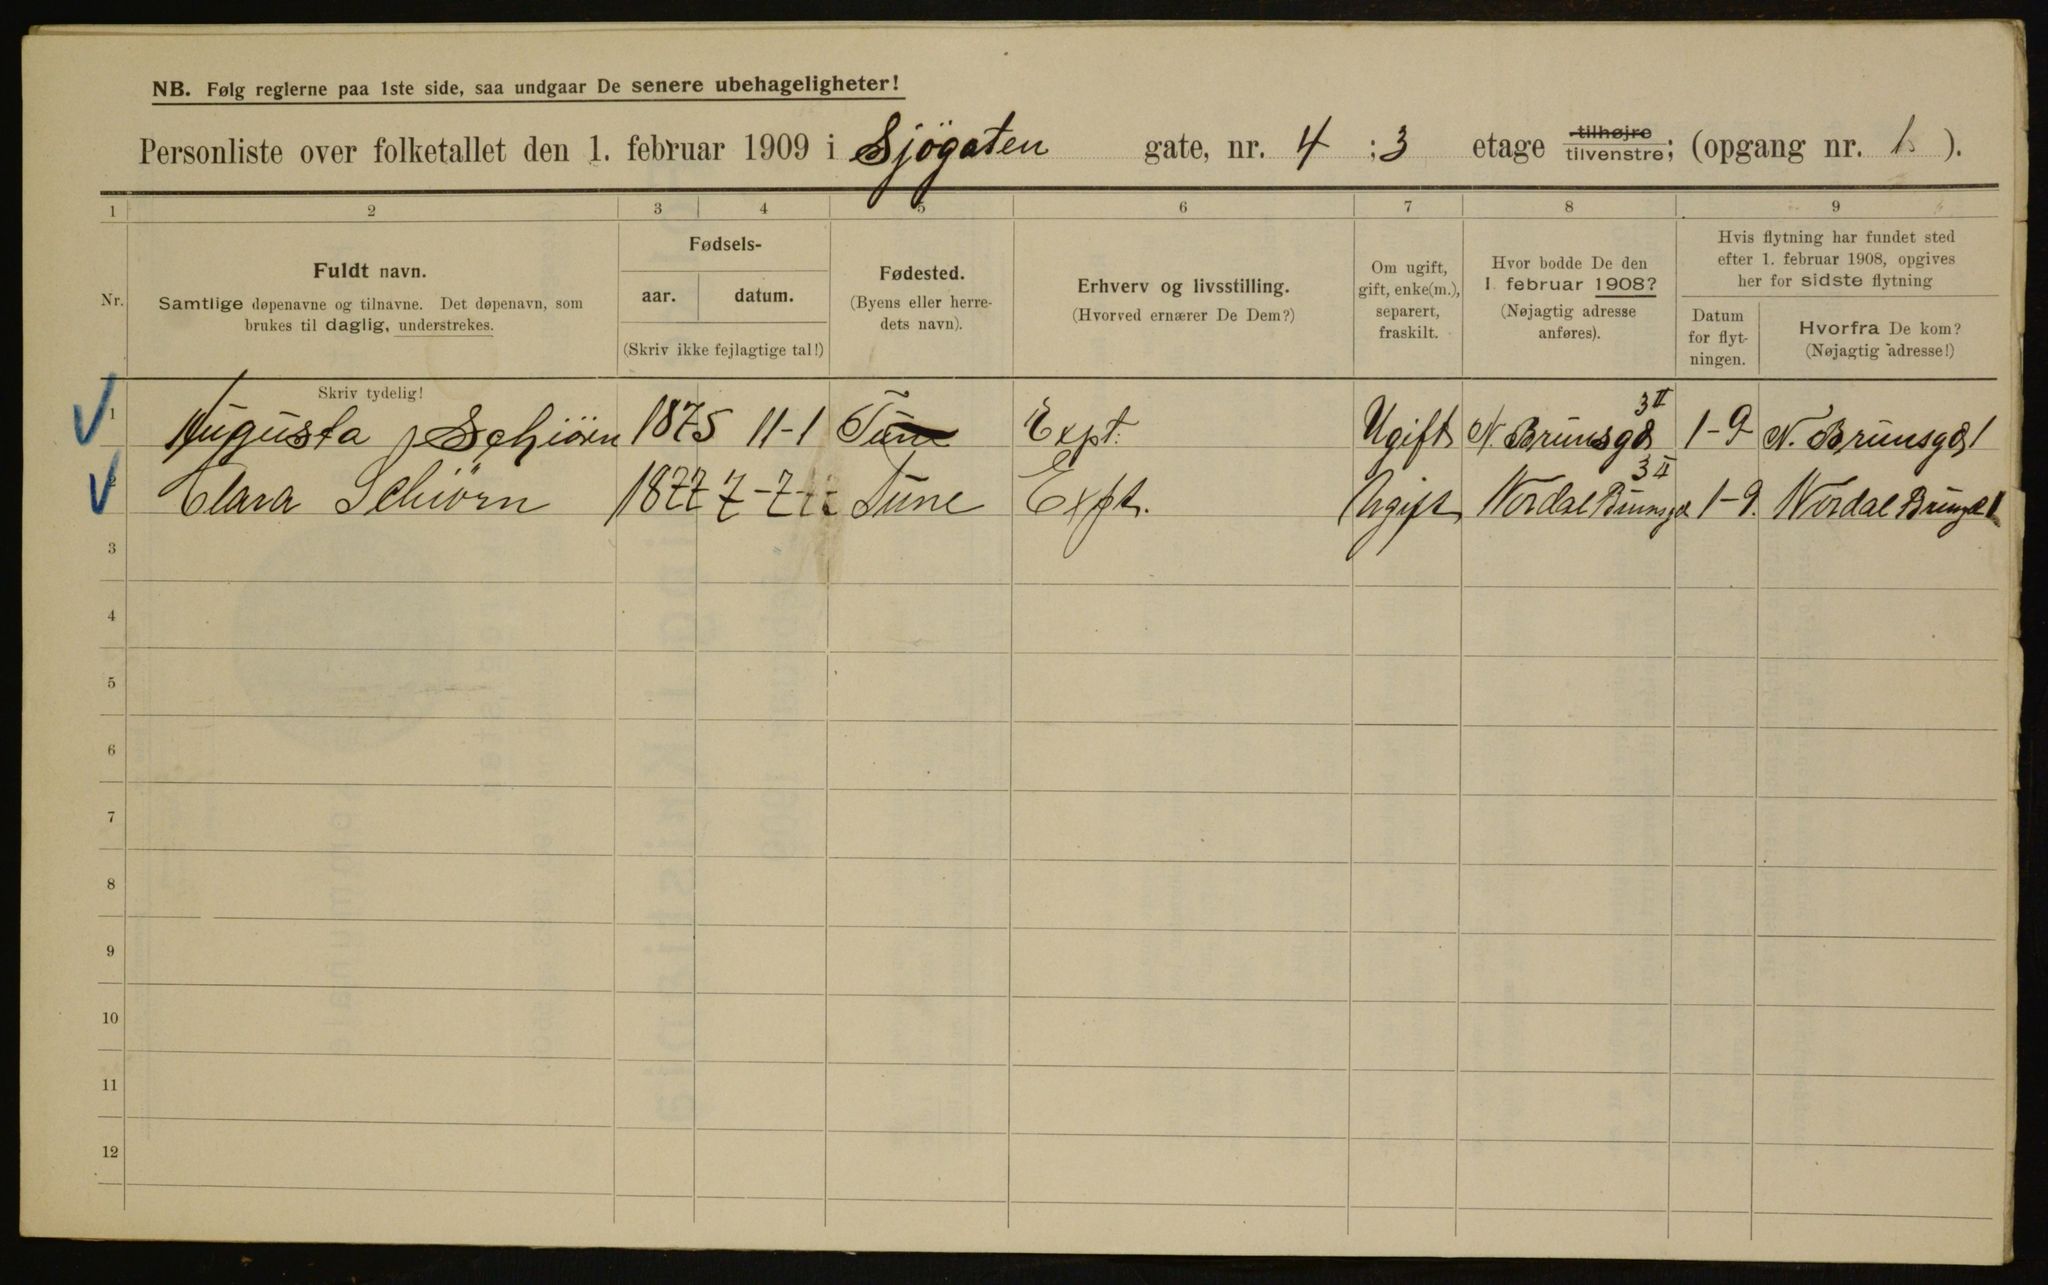 NB. Følg reglerne paa 1ste side, saa undgaar De senere ubehageligheter!
Personliste over folketallet den 1. februar 1909 i Sjögaten gate, nr. 4 ; 3 etage tilhøjre tilvenstre; (opgang nr. ).
1 2 3 4 5 6 7 8 9
Nr.
Fuldt navn.
Samtlige døpenavne og tilnavne. Det døpenavn, som
brukes til daglig, understrekes.
Fødsels-
aar. datum.
(Skriv ikke fejlagtige tal!)
Fødested.
(Byens eller herre-
dets navn).
Erhverv og livsstilling.
(Hvorved ernærer De Dem?)
Om ugift,
gift, enke(m.),
separert,
fraskilt.
Hvor bodde De den
1. februar 1908?
(Nøjagtig adresse
anføres).
Hvis flytning har fundet sted
efter 1. februar 1908, opgives
her for sidste flytning
Datum
for flyt-
ningen.
Hvorfra De kom?
(Nøjagtig adresse!)
Skriv tydelig!
1 Augusta Schiörn 1875 11-1 Tune Expt. Ugift N. Brunsgd 3 II 1-9 N. Brunsgd 1
2 Clara Schiörn 1877 7-7 Tune Expt. Ugift Nordal Brunsgd 3 II 1-9. Nordal Brunsgd 1
3
4
5
6
7
8
9
10
11
12